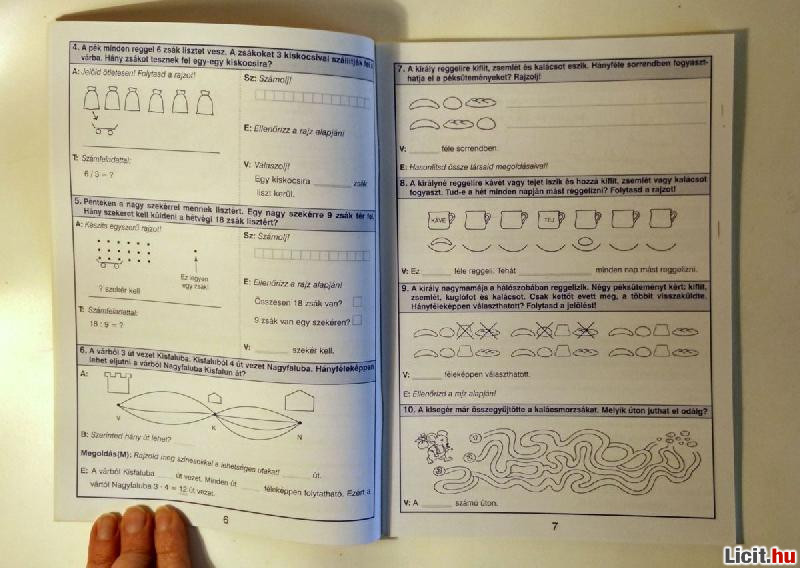 4. A pék minden reggel 6 zsák lisztet vesz. A zsákokat 3 kiskocsival szállítják fel a
várba. Hány zsákot tesznek fel egy-egy kiskocsira?
A: Jelöld ötletesen! Folytasd a rajzot!
Sz: Számolj!
E: Ellenőrizz a rajz alapján!
T: Számfeladattal:
6 / 3 = ?
V: Válaszolj!
Egy kiskocsira zsák
liszt kerül.
5. Pénteken a nagy szekérrel mennek lisztért. Egy nagy szekérre 9 zsák fér fel.
Hány szekeret kell küldeni a hétvégi 18 zsák lisztért?
A: Készíts egyszerű rajzot!
Sz: Számolj!
Ez legyen
egy zsák!
? szekér kell
E: Ellenőrizz a rajz alapján!
Összesen 18 zsák van?
T: Számfeladattal:
18 : 9 = ?
9 zsák van egy szekéren?
V: szekér kell.
6. A várból 3 út vezet Kisfaluba. Kisfaluból 4 út vezet Nagyfaluba. Hányféleképpen
lehet eljutni a várból Nagyfaluba Kisfalun át?
A:
V
K
N
B: Szerinted hány út lehet?
Megoldás(M): Rajzold meg színesekkel a lehetséges utakat! út.
E: A várból Kisfaluba út vezet. Minden út féleképpen folytatható. Ezért a
várból Nagyfaluba 3 · 4 = 12 út vezet.
6
7. A király reggelire kiflit, zsemlét és kalácsot eszik. Hányféle sorrendben fogyaszt-
hatja el a péksüteményeket? Rajzolj!
V: féle sorrendben.
E: Hasonlítsd össze társaid megoldásaival!
8. A királyné reggelire kávét vagy tejet iszik és hozzá kiflit, zsemlét vagy kalácsot
fogyaszt. Tud-e a hét minden napján mást reggelizni? Folytasd a rajzot!
KÁVÉ
TEJ
V: Ez féle reggeli. Tehát minden nap mást reggelizni.
9. A király nagymamája a hálószobában reggelizik. Négy péksüteményt kért: kiflit,
zsemlét, kuglófot és kalácsot. Csak kettőt evett meg, a többit visszaküldte.
Hányféleképpen választhatott? Folytasd a jelölést!
V: féleképpen választhatott.
E: Ellenőrizd a rajz alapján!
10. A kisegér már összegyűjtötte a kalácsmorzsákat. Melyik úton juthat el odáig?
V: A számú úton.
7
Licit.hu